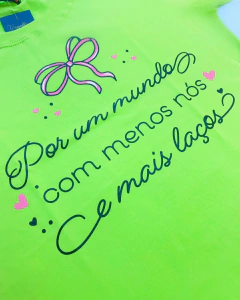 Por um mundo
com menos nós
e mais laços